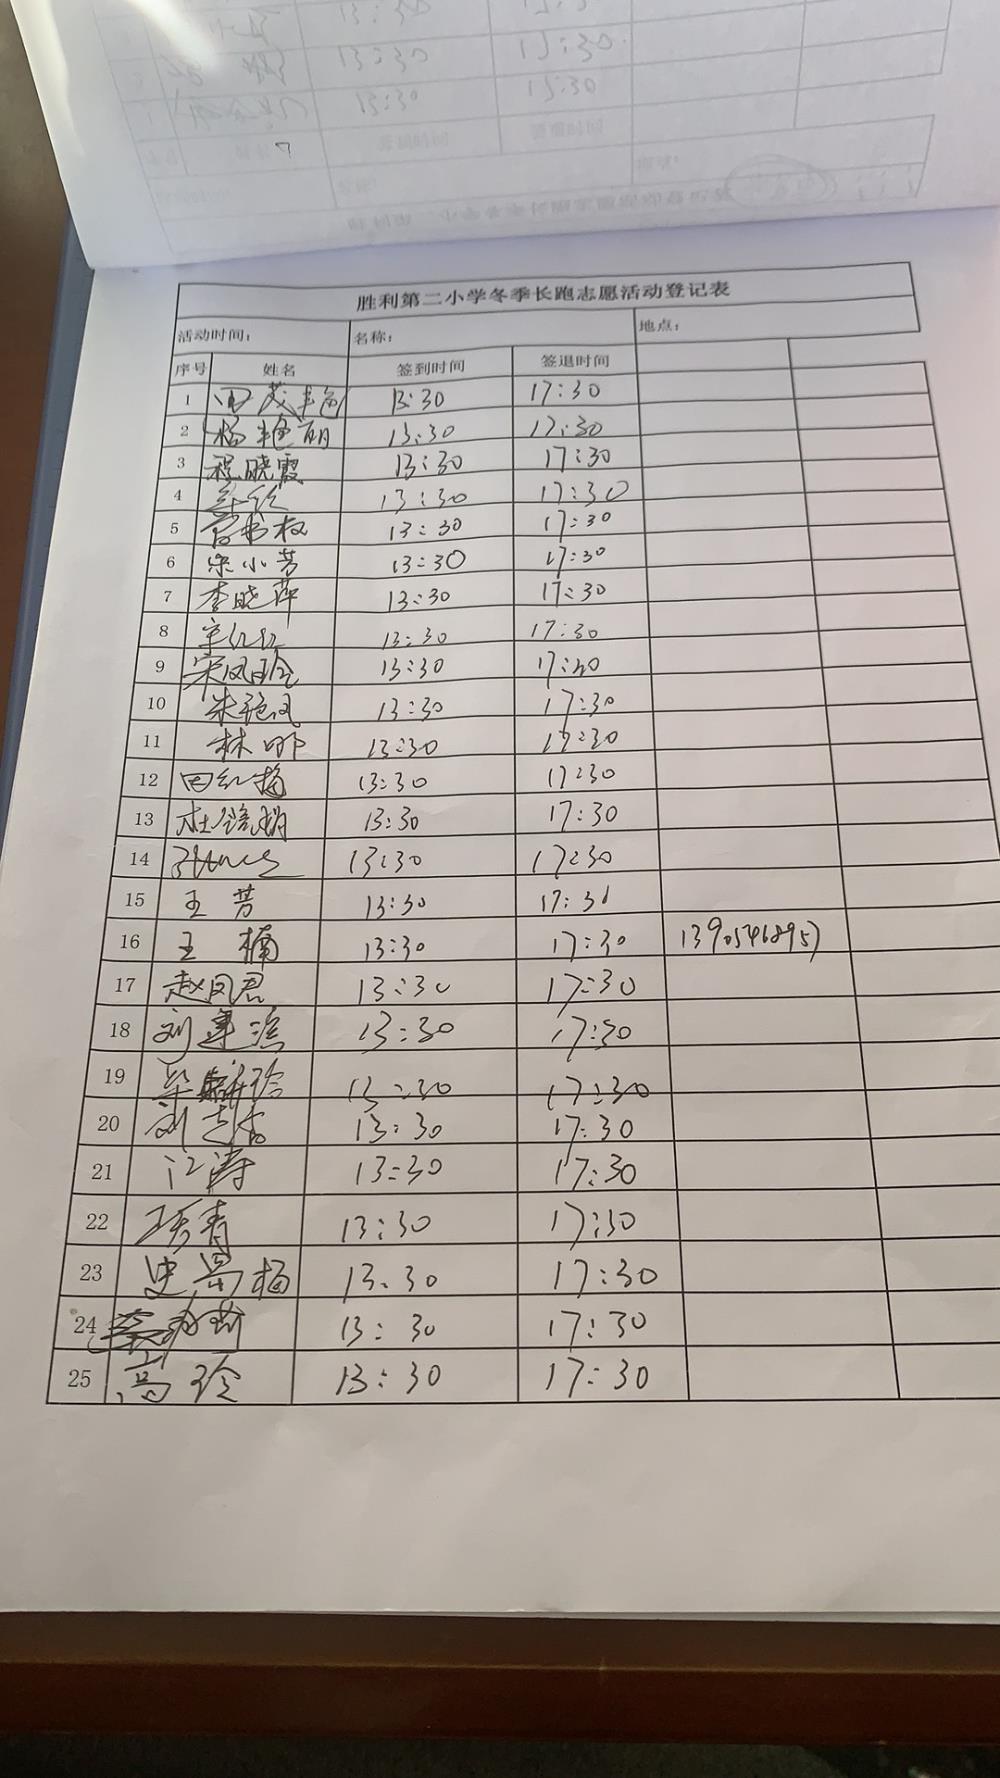 胜利第二小学冬季长跑志愿活动登记表
活动时间： 名称： 地点：
序号 姓名 签到时间 签退时间
1 田茂艳 13:30 17:30
2 杨艳丽 13:30 17:30
3 程晓霞 13:30 17:30
4 13:30 17:30
5 13:30 17:30
6 宋小芳 13:30 17:30
7 李晓萍 13:30 17:30
8 13:30 17:30
9 宋凤玲 13:30 17:30
10 朱艳凤 13:30 17:30
11 林娜 13:30 17:30
12 田红梅 13:30 17:30
13 13:30 17:30
14 13:30 17:30
15 王芳 13:30 17:30
16 王楠 13:30 17:30 13905468957
17 赵凤君 13:30 17:30
18 刘建滨 13:30 17:30
19 13:30 17:30
20 13:30 17:30
21 江涛 13:30 17:30
22 13:30 17:30
23 史常梅 13:30 17:30
24 13:30 17:30
25 高玲 13:30 17:30